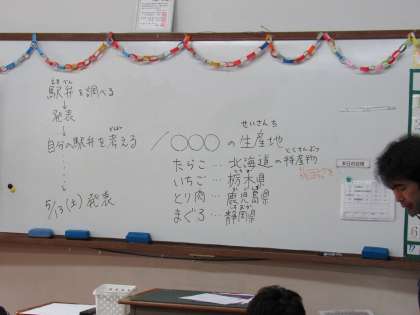 えきべん
駅弁を調べる
↓
発表
↓
自分の駅弁を考える
↓
5/13(土)発表
せいさんち
/〇〇〇の生産地
とくさんぶつ
たらこ…北海道の特産物
いちご…栃木県
とり肉…鹿児島県
まぐろ…静岡県